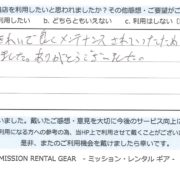 店を利用したいと思われましたか？その他感想・ご要望がご
利用したい　b. どちらともいえない　c. 利用はしない（
きれいで良くメンテナンスされていったため
ました。ありがとうございました。
いました。戴いたご感想・意見を大切に今後のサービス向上に
になる方への参考の為、当HP上で利用させて戴くことがござい
是非、またのご利用機会を戴けましたら幸いです。
MISSION RENTAL GEAR　- ミッション・レンタル ギア -